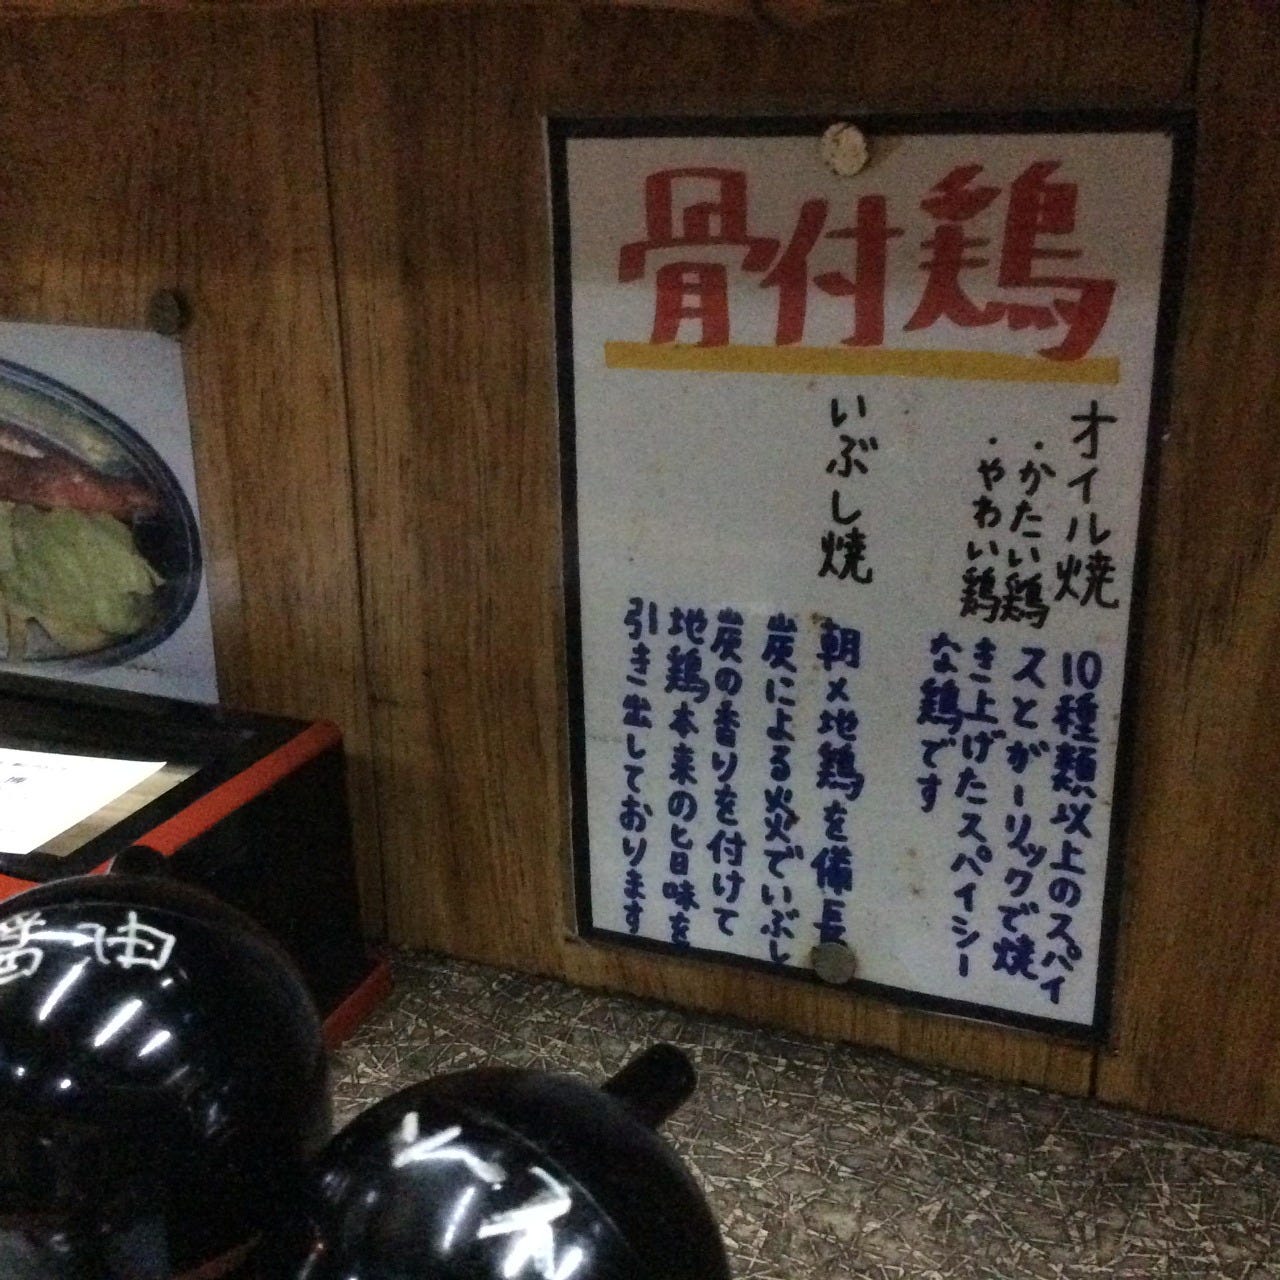 骨付鶏
オイル焼
・かたい鶏
・やわい鶏
10種類以上のスパイ
スとガーリックで焼
き上げたスパイシー
な鶏です
いぶし焼
朝〆地鶏を備長
炭による炎でいぶし
炭の香りを付けて
地鶏本来の旨味を
引き出しております
醤油